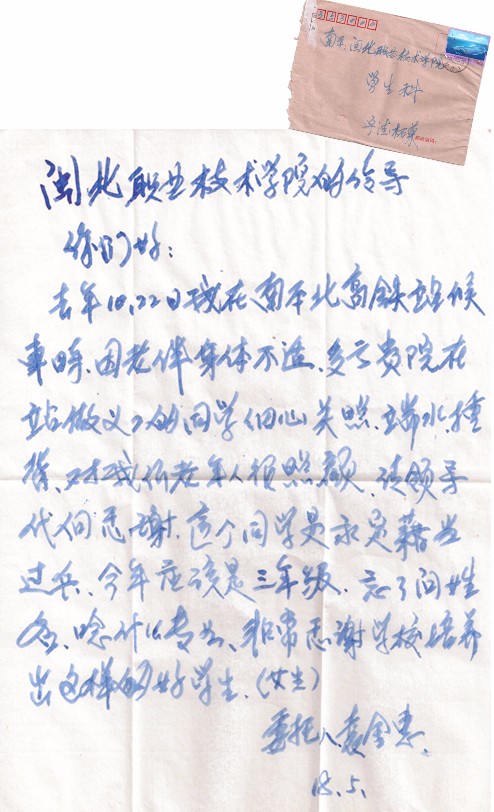 南平.闽北职业技术学院
学生科
闽北职业技术学院的领导
你们好:
去年10.22日我在南平北高铁站候
车时.因老伴身体不适.多亏贵院在
站做义工的同学细心关照.端水
对我们老年人很照顾.请领导
代问感谢.这个同学是永定籍当
过兵、今年应该是三年级.忘了问姓
名、唸什么专业、非常感谢学校培养
出这样的好学生.(女生)
委托人袁金惠.
18.5.